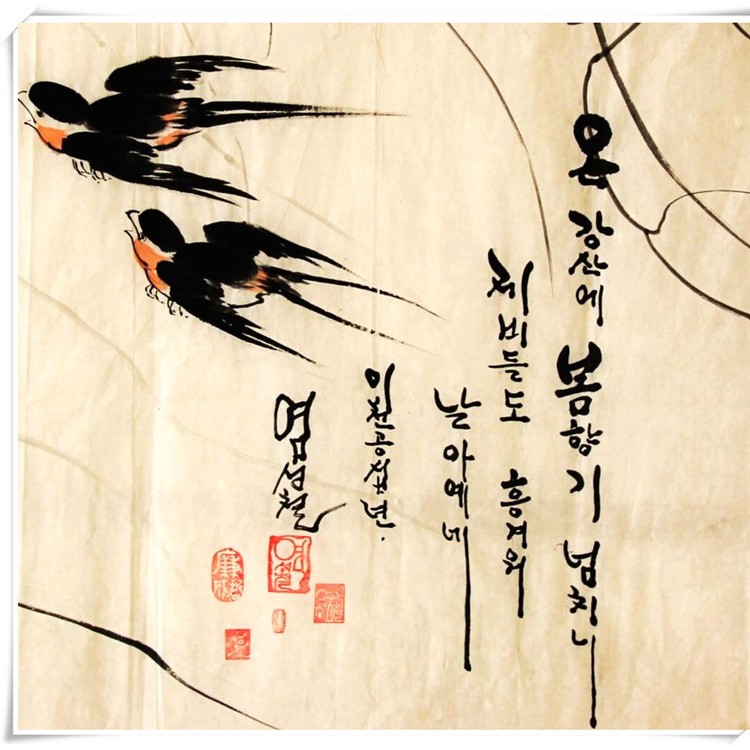 온 강산에 봄향기 넘치니
제비들도 흥겨워
날아예네
이천공삼년.
염성철